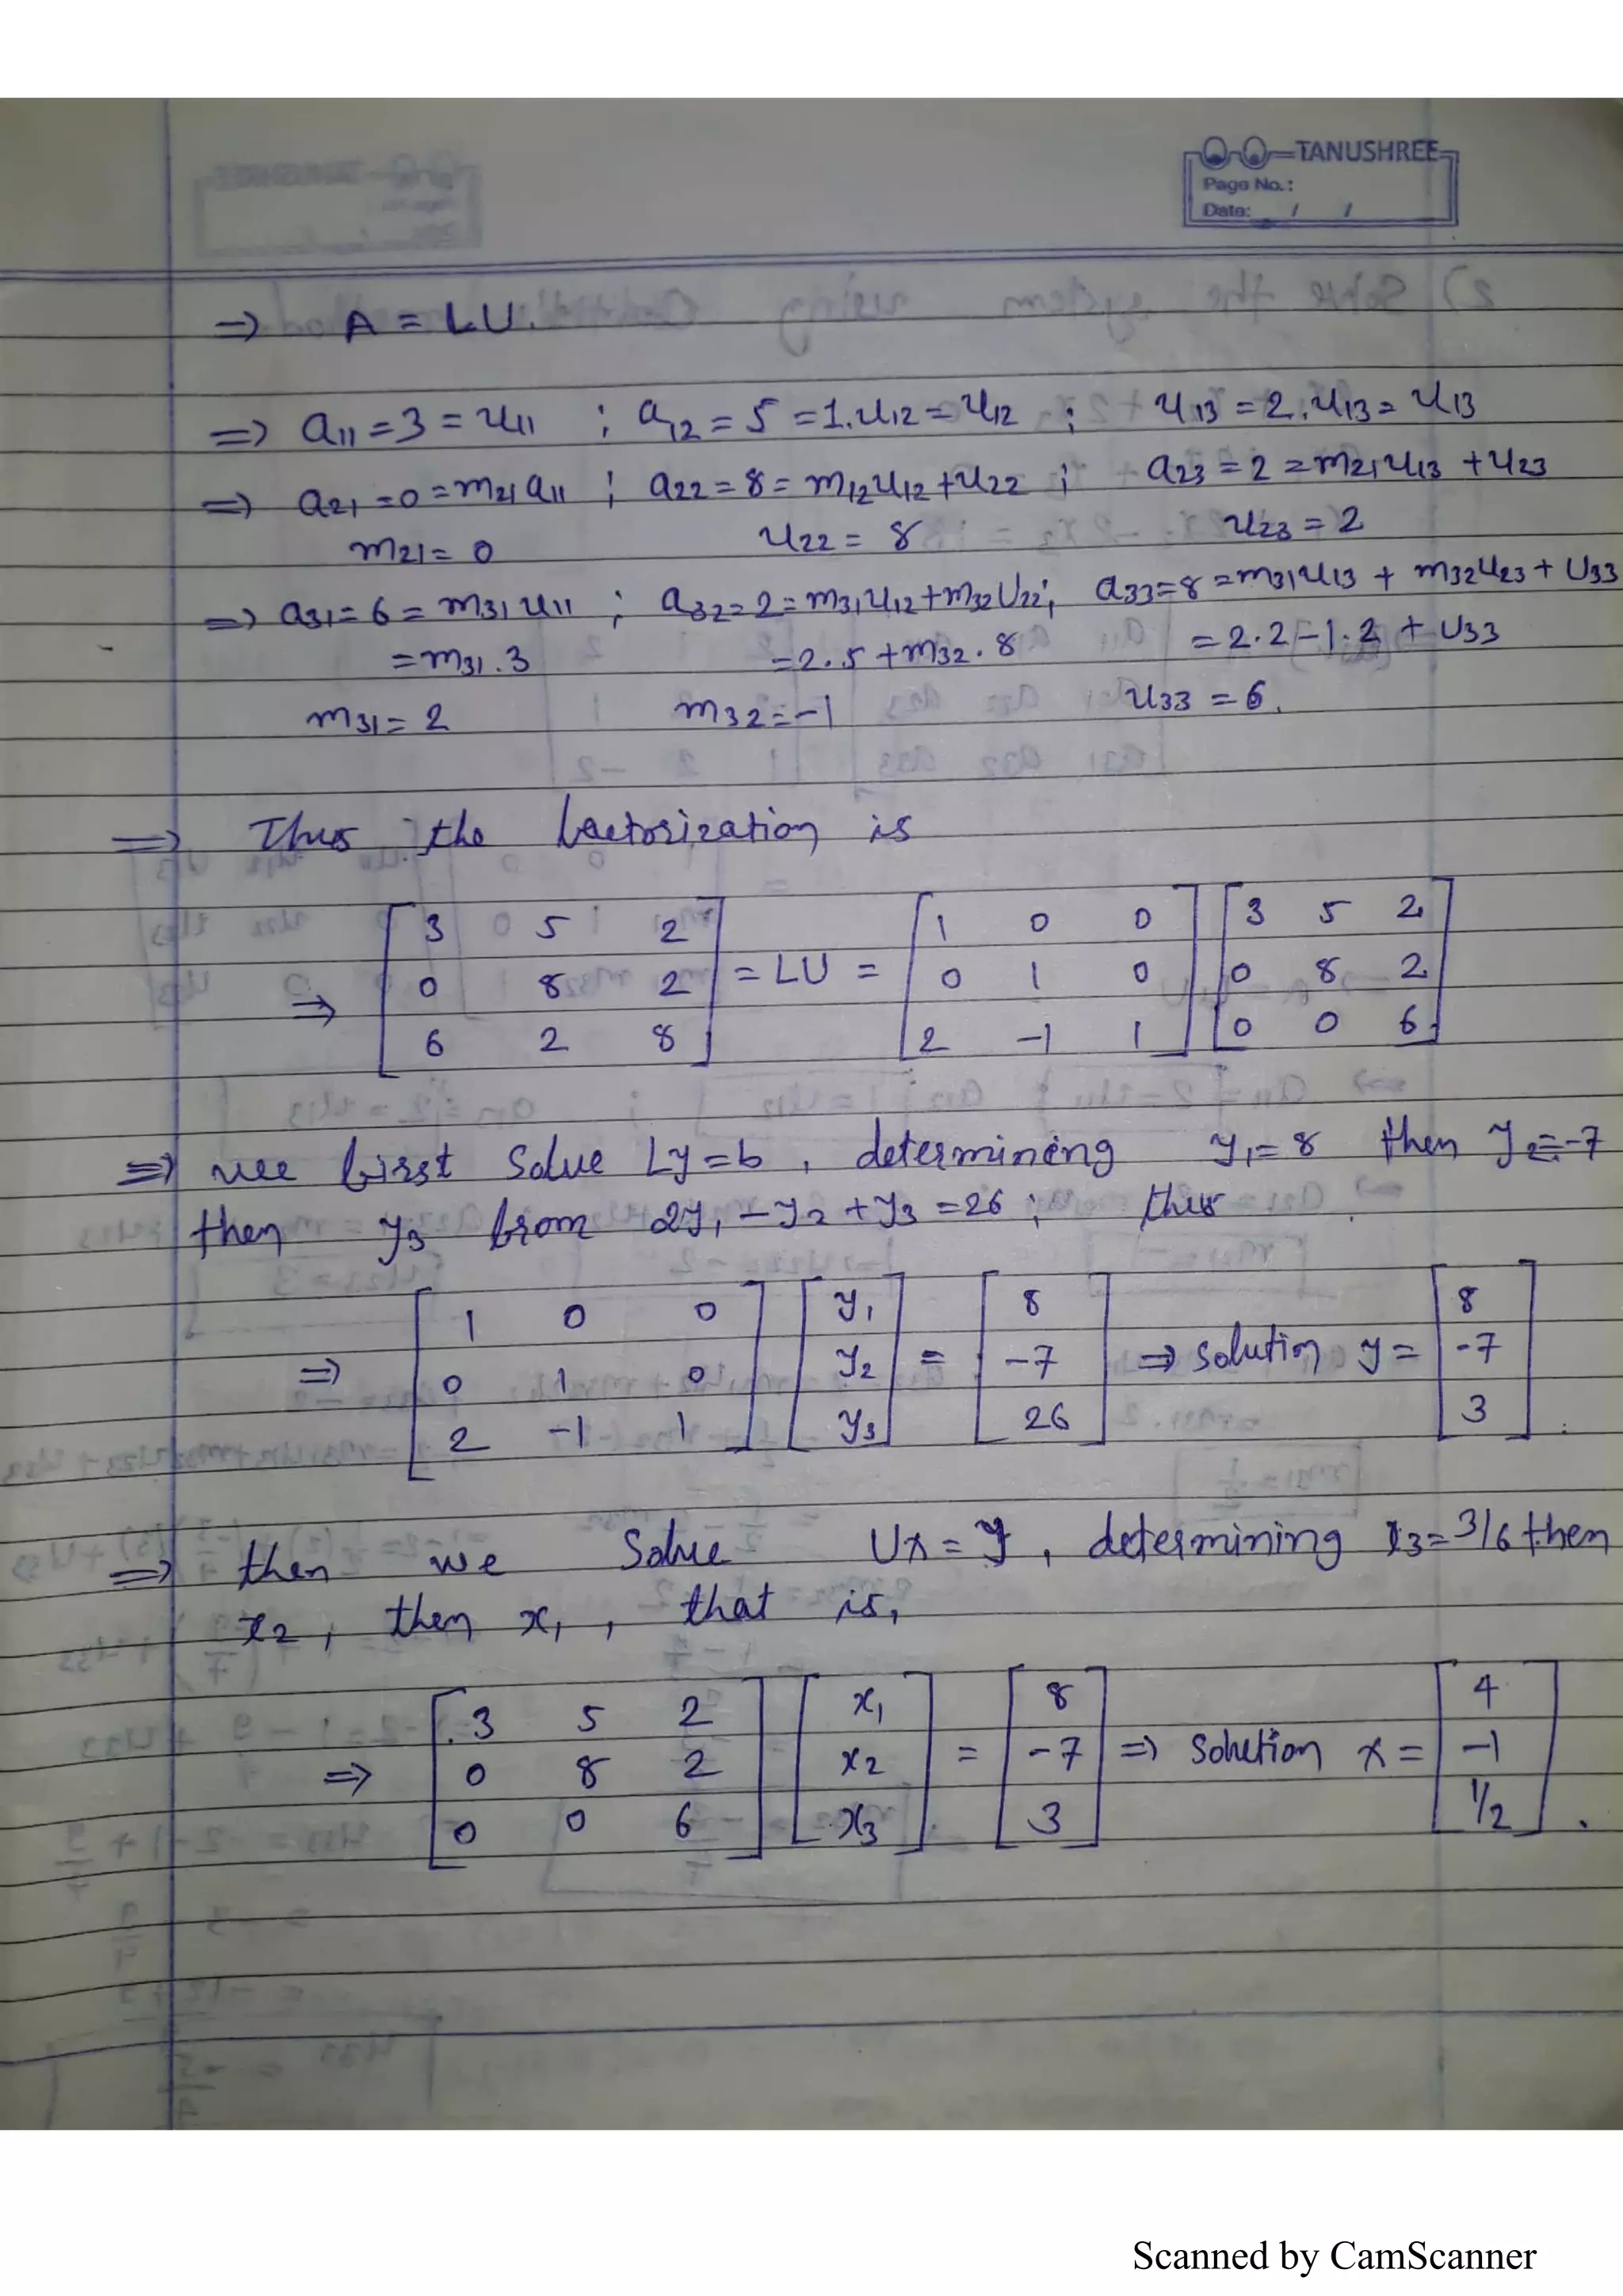 TANUSHREE
Page No.:
Date: / /
⇒ A = LU.
⇒ a11 = 3 = u11 ; a12 = 5 = 1.u12 = u12 ; u13 = 2.u13 = u13
⇒ a21 = 0 = m21 a11 ; a22 = 8 = m12u12 + u22 ; a23 = 2 = m21u13 + u23
m21 = 0 u22 = 8 u23 = 2
⇒ a31 = 6 = m31 u11 ; a32 = 2 = m31u12 + m32U22; a33 = 8 = m31u13 + m32u23 + U33
= m31 . 3 = 2.5 + m32 . 8 = 2.2 - 1.2 + U33
m31 = 2 m32 = -1 u33 = 6.
⇒ Thus the factorization is
3 5 2 1 0 0 3 5 2
⇒ 0 8 2 = LU = 0 1 0 0 8 2
6 2 8 2 -1 1 0 0 6
⇒ we first Solve Ly = b , determining y1 = 8 then y2 = -7
then y3 from 2y1 - y2 + y3 = 26 ; thus
1 0 0 y1 8 8
⇒ 0 1 0 y2 = -7 ⇒ solution y = -7
2 -1 1 y3 26 3
⇒ then we Solve Ux = y , determining x3 = 3/6 then
x2 , then x1 , that is,
3 5 2 x1 8 4
⇒ 0 8 2 x2 = -7 ⇒ solution x = -1
0 0 6 x3 3 1/2 .
Scanned by CamScanner